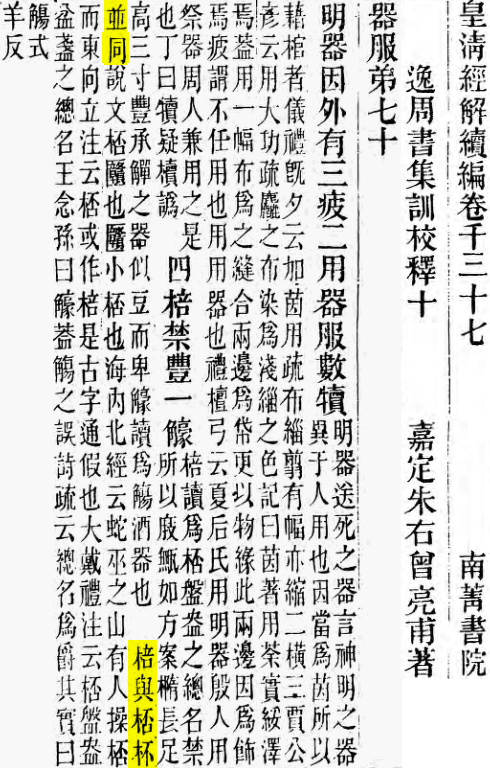 皇淸經解續編卷千三十七　南菁書院
逸周書集訓校釋十　嘉定朱右曾亮甫著
器服弟七十
明器因外有三疲二用器服數犢
明器送死之器言神明之器
異于人用也因當爲茵所以
藉棺者儀禮旣夕云加茵用疏布緇翦有幅亦縮二橫三賈公
彥云用大功疏麤之布染爲淺緇之色記曰茵著用荼實綏澤
焉葢用一幅布爲之縫合兩邊爲帒更以物緣此兩邊因爲飾
焉疲謂不任用也用用器也禮檀弓云夏后氏用明器殷人用
祭器周人兼用之是
也丁曰犢疑櫝譌
四棓禁豐一
棓讀爲桮盤盎之總名禁
所以庪甒如方案橢長足
高三寸豐承觶之器似豆而卑讀爲觴酒器也　棓與桮杯
並同說文桮也小桮也海內北經云蛇巫之山有人操桮
而東向立注云桮或作棓是古字通假也大戴禮注云桮盤盎
盆盞之總名王念孫曰葢觴之誤詩疏云總名爲爵其實曰
觴式
羊反